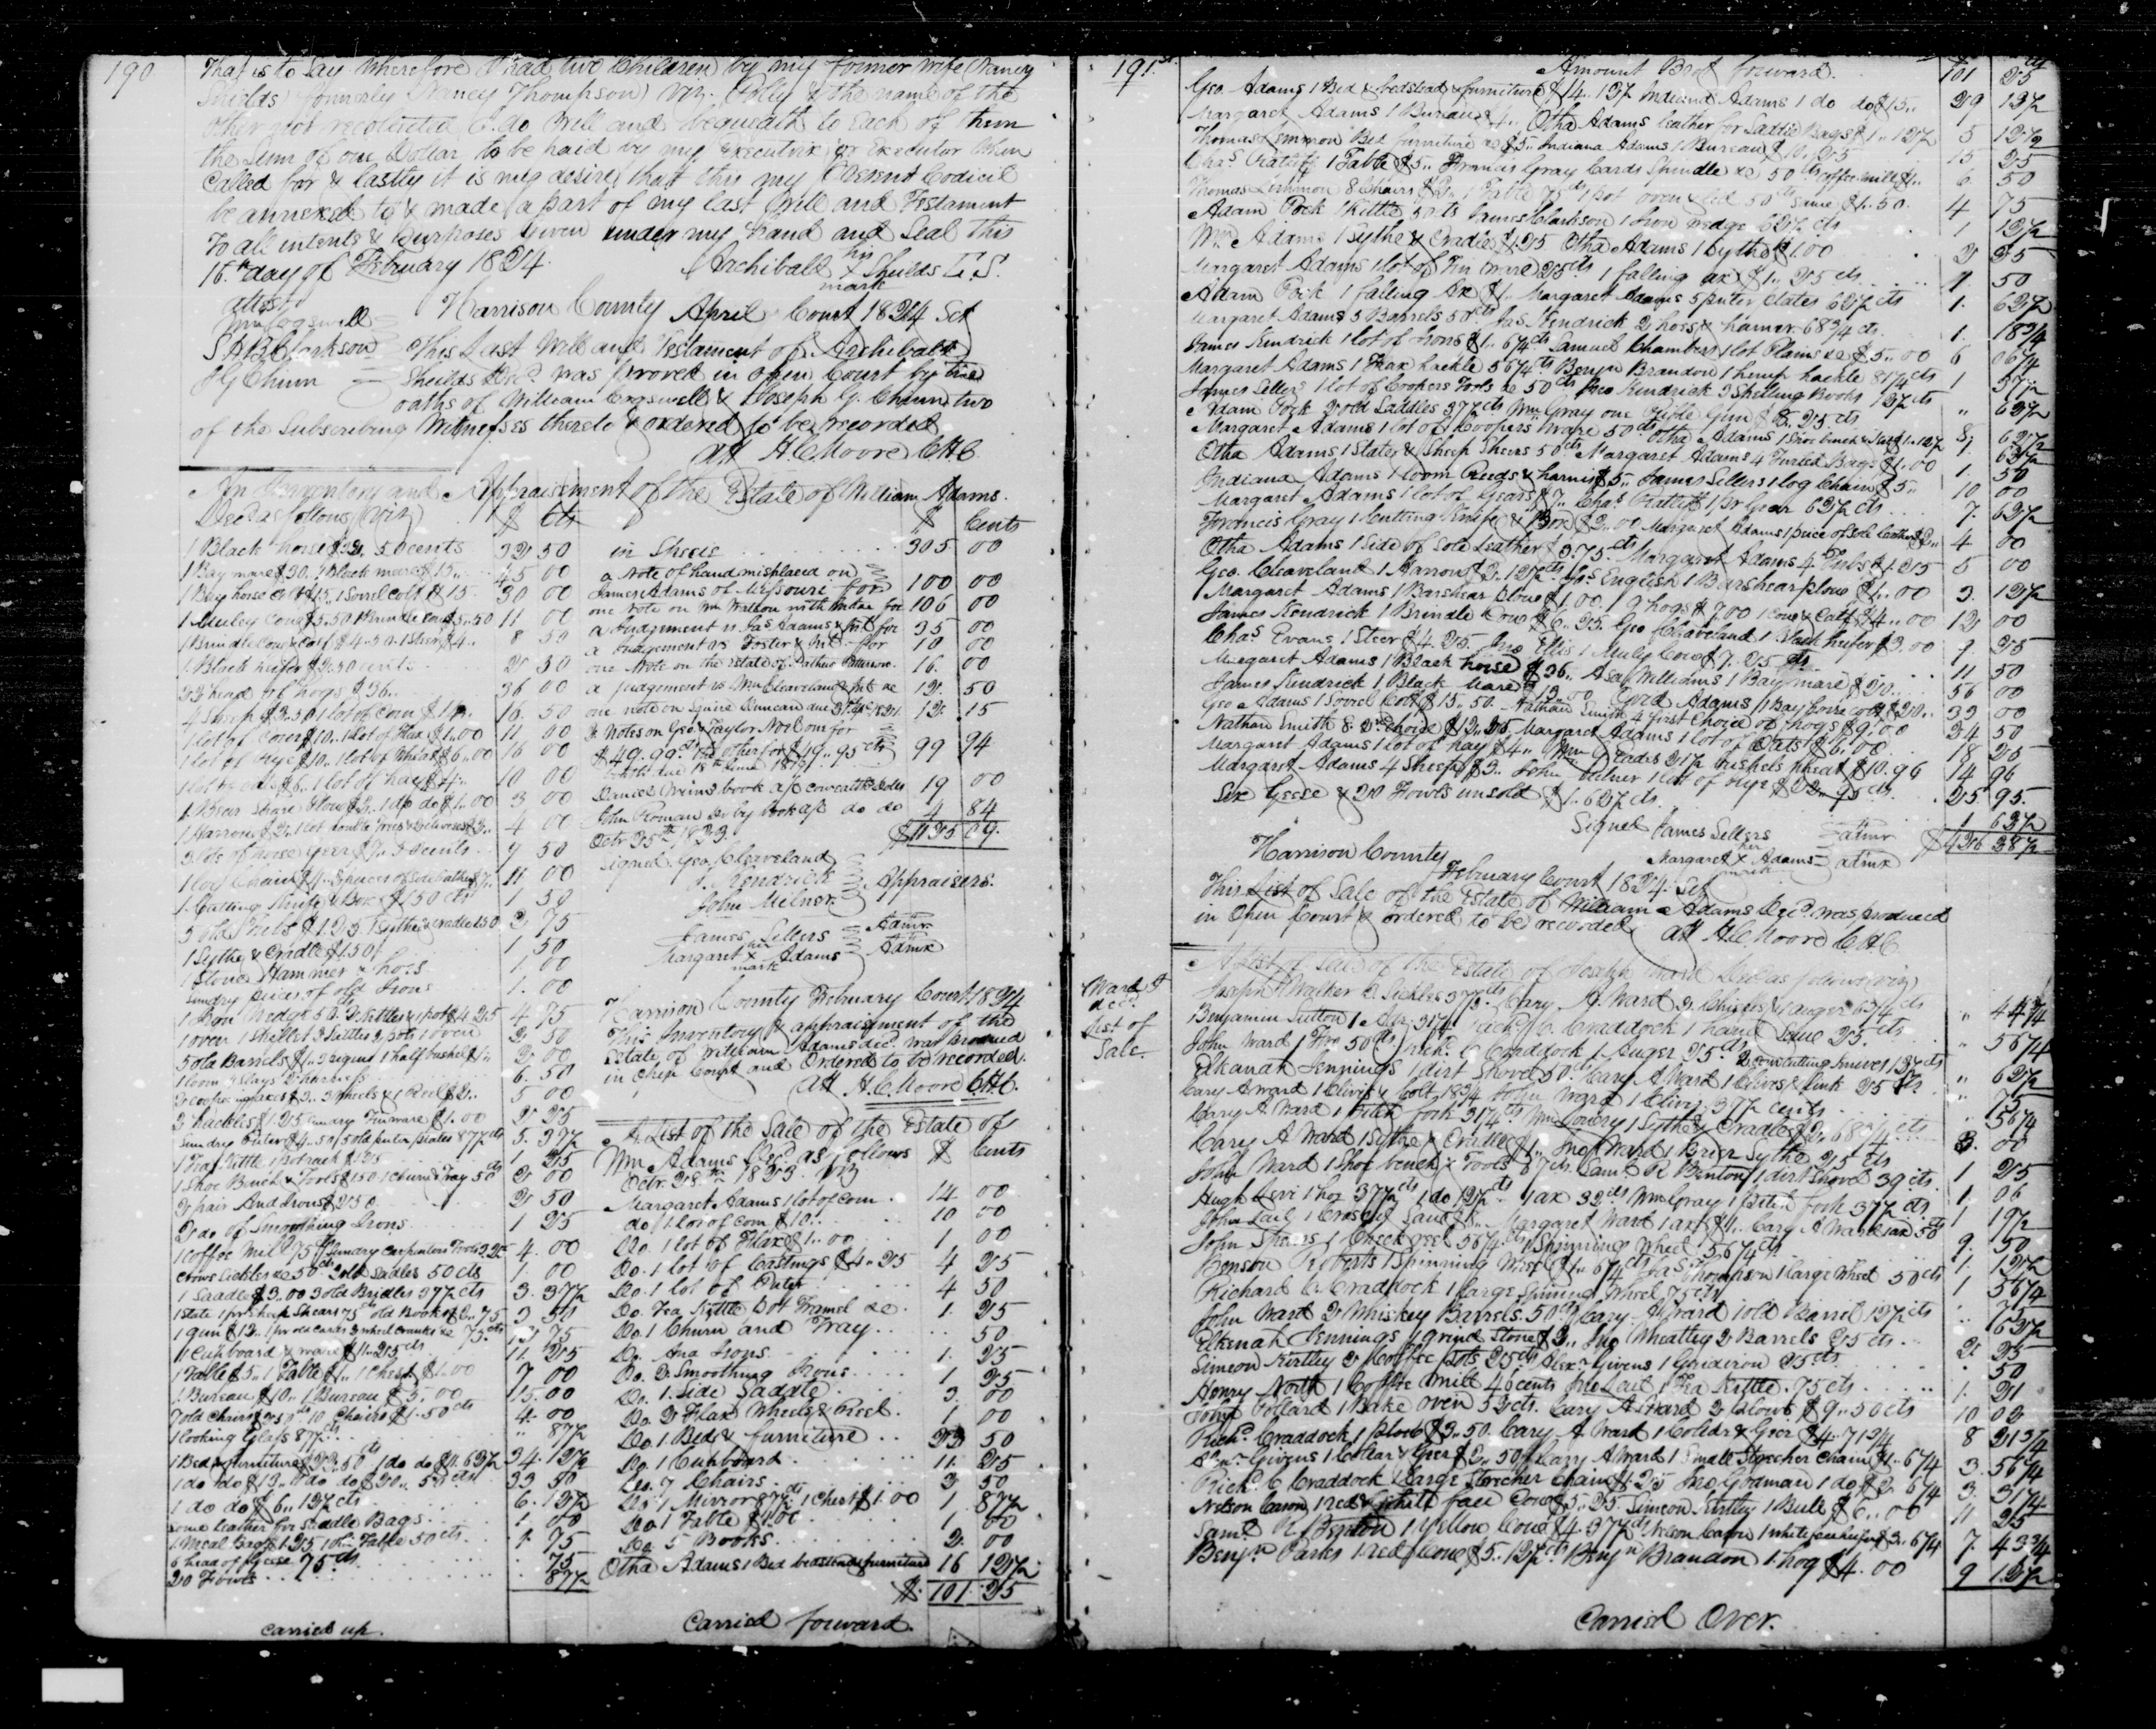 190
That is to say Wherefore I had two Children by my former wife Nancy
Shields formerly Nancy Thompson viz. Polly & the name of the
other not recolected I do Will and bequeath to Each of them
the Sum of one Dollar to be paid by my Executrix or Executor when
Called for & lastly it is my desire that this my Present Codicil
be annexed to & made a part of my last Will and Testament
To all intents & Purposes Given under my hand and Seal this
16th day of February 1824. Archibald his x mark Shields L.S.
attest
Wm Cogswell
S B Clarkson
J G Chinn
Harrison County April Court 1824 Sct
This Last Will and Testament of Archibald
Sheilds Decd. was proved in open Court by the
oaths of William Cogswell & Joseph G. Chinn two
of the Subscribing Witnesses thereto & ordered to be recorded
att H C Moore CHC
An Inventory and Appraisement of the Estate of William Adams
Decd as follows (viz) $ cts
1 Black horse $32, 50 cents 32 50
1 Bay mare $30. 1 Black mare $15.. 45 00
1 Bay horse Colt $15 1 Sorrel colt $15 30 00
1 Muley Cow $5.50 1 Brindle Cow $5.50 11 00
1 Brindle Cow & Calf $4.50. 1 Steer $4.. 8 50
1 Black heifer $2.50 cents 2 50
23 head of hogs $36.. 36 00
4 Sheep $3.50 1 lot of corn $13. 16. 50
1 lot of Corn $10.. 1 lot of Flax $1.00 11 00
1 lot of Rye $10.. 1 lot of Wheat $6..00 16 00
1 lot of oats $6.. 1 lot of hay $4.. 10 00
1 Bear Share Plow $2. 1 do do $1..00 3 00
4 00
3 lots of horse Gear $7.. 50 cents 7 50
1 log Chain $4. 3 pieces of Sole leather $7.. 11 00
1 Cutting Knife & Box $1 50 cts 1 50
5 old Tubs $1.25 1 Sythe & cradle 1.50 2 75
1 Sythe & Cradle $1.50 1 50
1 Stone Hammer & hoes 1. 00
Sundry pieces of old Irons 1. 00
4 75
1 oven 1 Skillet 2 Kittles 2 pots 1 oven 2 50
2 00
1 loom 3 Slays 2 harness 6. 50
5 00
3 hackles $1.25 Sundry Tinware $1.00 2 25
Sundry Puter $4.50 5 old puter plates 87½ cts 5. 37½
1 Tea Kittle 1 potrack $1.25 1 25
1 Shoe Bench & Tools $1.50 1 Churn & Tray 50 cts 2 00
2 pair And Irons $2.50 2 50
2 do of Smoothing Irons 1 25
1 Coffee Mill 75 cts Sundry Carpenters Tools 3.25 4. 00
2 old Sadles 50 cts 1 00
1 Saddle $3.00 3 old Bridles 37½ cts 3. 37½
1 Slate 1 pr Sheep Shears 75 cts old Books
1 Cupboard & ware $11..25 cts 11 25
1 Table $5.. 1 Table $1.. 1 Chest $1.00 7 00
1 Bureau $10.. 1 Bureau $5..00 15.00
7 old Chairs $2.50 10 Chairs $1.50 cts 4. 00
1 looking Glass 87½ cts " 87½
1 Bed & furniture $22.50 cts 1 do do $11.62½ 34. 12½
1 do do $13.. 1 do do $20.. 50 cts 33 50
1 do do $6.. 12½ cts 6. 12½
Some leather for Saddle Bags 1. 00
1 Meal Bag $1.25 1 old Table 50 cts 1. 75
6 head of Geese 75 cts .. 75
20 Fowls .. 87½
carried up
$ Cents
in Specie 305 00
a Note of hand misplaced on
James Adams of Missouri for 100 00
one note on Wm Walton with Intr for 106 00
a Judgement vs Jas Adams & Int for 35 00
a Judgement vs Foster & Int for 10 00
one Note on the Estate of Arthur Patterson. 16. 00
a judgement vs Wm Cleaveland & Int &c 12. 50
one note on Squire Duncan due 12. 15
2 Notes on Geo. Taylor No 1 one for
$49..99 cts the other for $49..95 cts 99 94
both due 18th June 1821
Daniel Orims book a/c comwealth dolls 19 00
John Roman Dr by book a/c do do 4 84
Octr 25th 1823. $1125 09.
Signed. Geo. Cleaveland
J. Kendrick
John Milner
Appraisers.
James Sellers Admr.
Margaret her x mark Adams Admx
Harrison County February Court 1824
This Inventory & appraisment of the
Estate of William Adams dec. was produced
in Open Court and Ordered to be recorded.
att H. C. Moore CHC.
A List of the Sale of the Estate of
Wm Adams Decd. as follows $ Cents
Octr. 28th 1823 viz
Margaret Adams 1 lot of Corn. 14 00
do 1 lot of Corn $10.. 10 00
Do. 1 lot of Flax $1..00 1 00
Do. 1 lot of Castings $4..25 4 25
Do. 1 lot of Puter 4 50
Do. Tea Kittle Pot Tramel &c. 1. 25
Do. 1 Churn and Tray .. 50
Do. And Irons 1. 25
Do. 2 Smoothing Irons 1 25
Do. 1. Side Saddle 3. 00
Do. 2 Flax Wheels & Reel. 1 00
Do. 1 Bed & furniture 23 50
Do. 1 Cupboard 11. 25
Do. 7 Chairs 3 50
Do. 1 Mirror 87½ cts 1 Chest $1.00 1 87½
Do 1 Table $1.00 1 00
Do. 5 Books 2. 00
Otha Adams 1 Bed bedstead & furniture 16 12½
$. 101. 25
Carried forward.
191st.
Amount Brot forward. 101 25
Geo. Adams 1 Bed & bedstead & furniture $14..13½ Indiana Adams 1 do do $15.. 29 13½
Margaret Adams 1 Bureau $4.. Otha Adams leather for Saddle Bags $1..12½ 5 12½
Thomas Lemmon Bed furniture &c $5.. Indiana Adams 1 Bureau $10..25 15 25
Chas Ratcliff 1 Table $5.. Francis Gray Cards Spindle &c 50 cts Coffee mill $1.. 6. 50
4 75
Adam Pock 1 Kittle 50 cts James Clarkson 1 Iron wedge 62½ cts 1 12½
Wm Adams 1 Sythe & Cradle $1.25 Otha Adams 1 Sythe $1.00 2 25
Margaret Adams 1 lot of Tin ware 25 cts 1 falling ax $1..25 cts 1 50
Adam Pock 1 falling Ax $1.. Margaret Adams 5 puter plates 62½ cts 1. 62½
Margaret Adams 3 Barrels 50 cts Jas Kendrick 2 hoes & hamer 68¾ cts 1. 18¾
James Kendrick 1 lot of Irons $1..6¼ cts Samuel Chambers 1 lot Plains &c $5..00 6 06¼
Margaret Adams 1 Flax hackle 56¼ cts Benjn Brandon 1 hemp hackle 81¼ cts 1 37½
James Sellers 1 lot of Coopers Tools &c 50 cts Geo Kendrick 3 Shelling Books 12½ cts " 62½
Adam Pock 2 old Saddles 37½ cts Wm Gray one Rifle Gun $8..25 cts 8. 62½
Margaret Adams 1 lot of Coopers Ware 50 cts Otha Adams 1 Shoe bench & Last $1..12½ 1. 62½
Otha Adams 1 Slates & Sheep Shears 50 cts Margaret Adams 4 Bags $1.00 1. 50
Indiana Adams 1 loom Reeds & harnis $5.. James Sellers 1 log Chain $5.. 10 00
Margaret Adams 1 lot of Gears $7.. Chas Ratliff 1 pr Gear 62½ cts 7. 62½
Francis Gray 1 Cutting Knife & Box $2.00 Margaret Adams 1 piece of Sole leather $2.. 4 00
Otha Adams 1 Side of Sole Leather $3.75 cts Margaret Adams 4 Tubs $1.25 5 00
Geo. Cleaveland 1 Harrow $2.12½ cts Jas English 1 Barshear plow $1..00 3. 12½
Margaret Adams 1 Barshear Plow $1.00 19 hogs $7.00 1 Cow & Calf $4..00 12 00
James Kendrick 1 Brindle Cow $6..25. Geo Cleaveland 1 Black heifer $3.00 9. 25
Chas. Evans 1 Steer $4.25. Jno Ellis 1 Muly Cow $7.25 cts 11 50
Margaret Adams 1 Black horse $36.. Asa Williams 1 Bay mare $20.. 56 00
James Kendrick 1 Black Mare $13.00 Geo Adams 1 Bay horse colt $20.. 33 00
Geo Adams 1 Sorrel Colt $15..50. Nathan Smith 4 first Choice of hogs $9..00 24 50
Nathan Smith 8. 2nd choice $12..25 Margaret Adams 1 lot of Oats $6.00 18 25
Margaret Adams 1 lot of hay $4.. Wm Eades 21½ bushels wheat $10.96 14 96
Margaret Adams 4 Sheep $3.. John Milner 1 lot of Rye $22..95 cts .25. 95.
Six Geese & 20 Fowls unsold $1..62½ cts. 1 62½
Signed James Sellers admr
Margaret her x mark Adams admx $426 38½
Harrison County
February Court 1824 Sct
This List of Sale of the Estate of William Adams Decd. was produced
in Open Court & ordered to be recorded
att H. C. Moore C.H.C
Ward J
decd.
List of
Sale.
A List of Sale of the Estate of Joseph Ward Decd as follows (viz)
Joseph Walker 2 Sickles 37½. Cary A. Ward 2 Chisels & 1 auger 6¼ cts " 44¼
Benjamin Sutton 1 Adz. 31¼ Richd. C. Craddock 1 hand Saw 25. cts " 56¼
John Ward 1 Froe 50 cts Richd. C Craddock 1 Auger 25 cts
Elkanah Jennings 1 dirt Shovel 50 cts Cary A Ward 1 Clivis & link 25 cts " 75
Cary A Ward 1 Clivis & Bolt 18¾ John Ward 1 Clivis 37½ cents .. 56¼
Cary A Ward 1 Pitch fork 31¼ cts Wm Lowery 1 Sythe & Cradle $2..68¾ cts 3. 00
Cary A Ward 1 Sythe & Cradle $1.. Jno Ward 1 Brier Sythe 25 cts 1 25
John Ward 1 Shoe bench & Tools 67 cts. Saml. R Benton 1 dirt Shovel 39 cts. 1. 06
Hugh Levi 1 hoe 37½ cts 1 do 12½ cts 1 ax 32 cts Wm Gray 1 Pitch fork 37½ cts 1 19½
John Lail 1 Cross cut Saw $8.. Margaret Ward 1 ax $1.. Cary A Ward 1 ax 50 cts 9. 50
John Shears 1 Check reel 56¼ cts 1 Spinning Wheel 56¼ cts 1. 12½
Henson Roberts 1 Spinning Wheel $1..6¼ cts Jas Thompson 1 large Wheel 50 cts 1 56¼
Richard C. Craddock 1 large Spining Wheel 75 cts .. 75
John Ward 2 Whiskey Barrels 50 cts Cary A Ward 1 old Barrel 12½ cts .. 62½
Elkenah Jennings 1 grind Stone $2.. Jno Wheatley 2 Barrels 25 cts 2. 25
Simeon Kirtley 2 Coffee Pots 25 cts Alexr Givens 1 Gridiron 25 cts . 50
Henry North 1 Coffee Mill 46 cents Jno Lail 1 Tea Kittle .75 cts 1. 21
John Pollard 1 Bake oven 52 cts. Cary A Ward 2 Plows $9..50 cts 10 02
Richd. Craddock 1 Plow $3.50. Cary A Ward 1 Collar & Geer $4.71¾ 8 21¾
Alexr Givens 1 Collar & Geer $2..50 Cary A Ward 1 Small Strecher Chain $1..6¼ 3. 56¼
Richd. C Craddock 1 Large Strecher Chain $1.25 Geo Goodman 1 do $2 6¼ 3. 31¼
Nelson Cason 1 red & white face Cow $5..25 Simeon Kirtley 1 Bull $6..00 11 25
Saml R Benton 1 Yellow Cow $4.37½ cts Nelson Cason 1 white face heifer $3..6¼ 7. 43¾
Benjn Parks 1 red Cow $5..12½ cts Benjn Brandon 1. hog $4.00 9 12½
Carried Over.